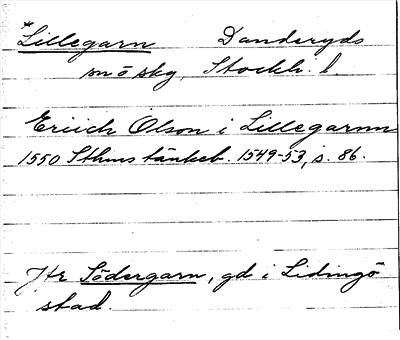 *Lillegarn Danderyds
sn ö skg, Stockh. l.
Eriich Olson i Lillegarnn
1550 Sthms tänkeb. 1549-53, s. 86.
Jfr Södergarn, gd i Lidingö
stad.